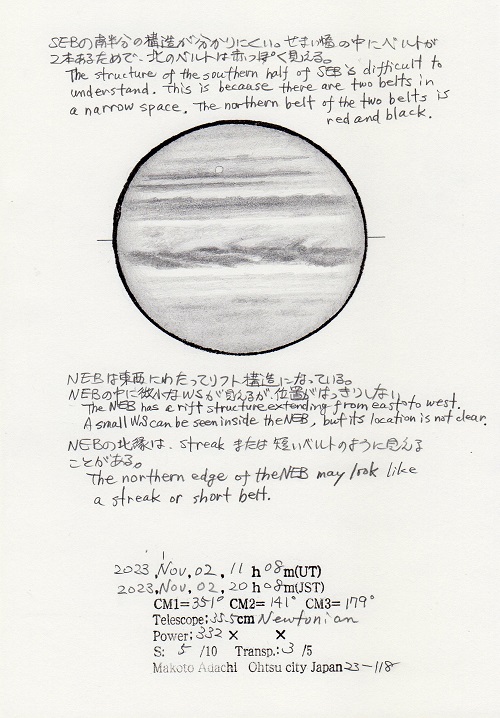 SEBの南半分の構造が分かりにくい。せまい幅の中にベルトが
2本あるためで、北のベルトは赤っぽく見える。
The structure of the southern half of SEB is difficult to
understand. This is because there are two belts in
a narrow space. The northern belt of the two belts is
red and black.
NEBは東西にわたってリフト構造になっている。
NEBの中に微小なWSが見えるが、位置がはっきりしない
The NEB has a rift structure extending from east to west.
A small WS can be seen inside the NEB, but its location is not clear.
NEBの北縁は、streak または短いベルトのように見える
ことがある。
The northern edge of the NEB may look like
a streak or short belt.
2023, Nov, 02, 11 h 08 m(UT)
2023, Nov, 02, 20 h 08 m(JST)
CM1= 351° CM2= 141° CM3= 179°
Telescope; 35.5cm Newtonian
Power; 332 × ×
S: 5 /10 Transp.: 3 /5
Makoto Adachi Ohtsu city Japan 23-118